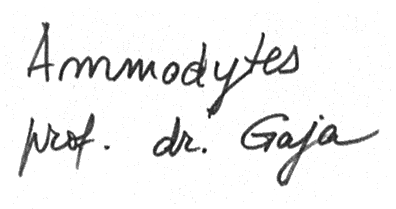 Ammodytes
prof. dr. Gaja